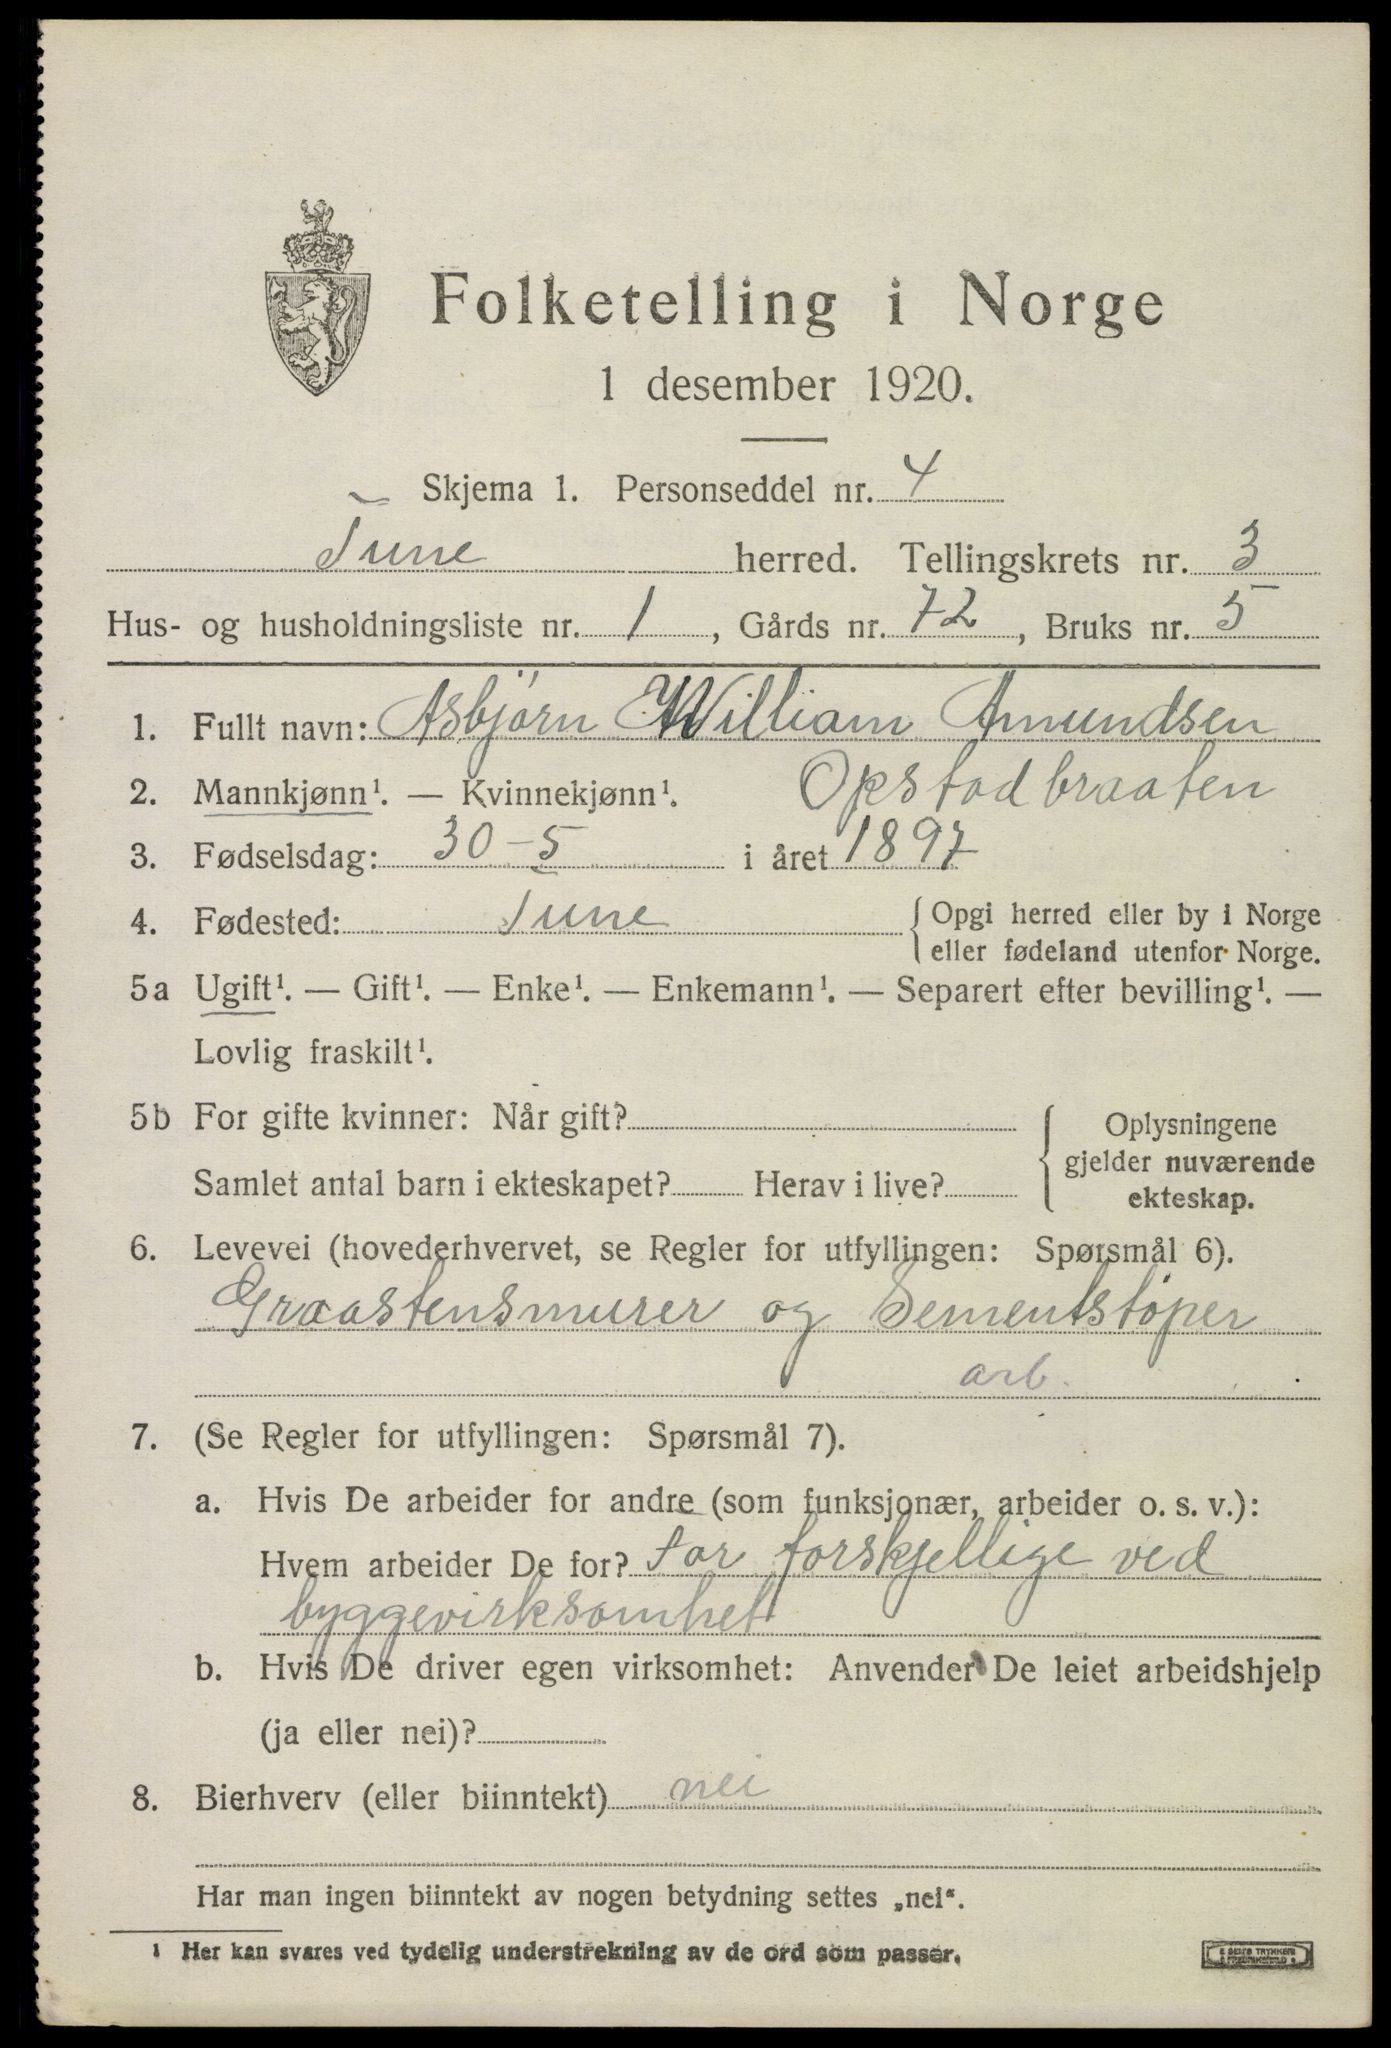 Folketelling i Norge
1 desember 1920.
Skjema 1. Personseddel nr. 4
Tune herred. Tellingskrets nr. 3
Hus- og husholdningsliste nr. 1, Gårds nr. 72, Bruks nr. 5
1. Fullt navn: Asbjørn William Amundsen
2. Mannkjønn¹. — Kvinnekjønn¹. Opstadbraaten
3. Fødselsdag: 30-5 i året 1897
4. Fødested: Tune { Opgi herred eller by i Norge
eller fødeland utenfor Norge.
5a Ugift¹. — Gift¹. — Enke¹. — Enkemann¹. — Separert efter bevilling¹. —
Lovlig fraskilt¹.
5b For gifte kvinner: Når gift? { Oplysningene
gjelder nuværende
Samlet antal barn i ekteskapet? Herav i live? ekteskap.
6. Levevei (hovederhvervet, se Regler for utfyllingen: Spørsmål 6).
Graastensmurer og Sementstøper
arb.
7. (Se Regler for utfyllingen: Spørsmål 7).
a. Hvis De arbeider for andre (som funksjonær, arbeider o. s. v.):
Hvem arbeider De for? For forskjellige ved
byggevirksomhet
b. Hvis De driver egen virksomhet: Anvender De leiet arbeidshjelp
(ja eller nei)?
8. Bierhverv (eller biinntekt) nei
Har man ingen biinntekt av nogen betydning settes „nei“.
¹ Her kan svares ved tydelig understrekning av de ord som passer.